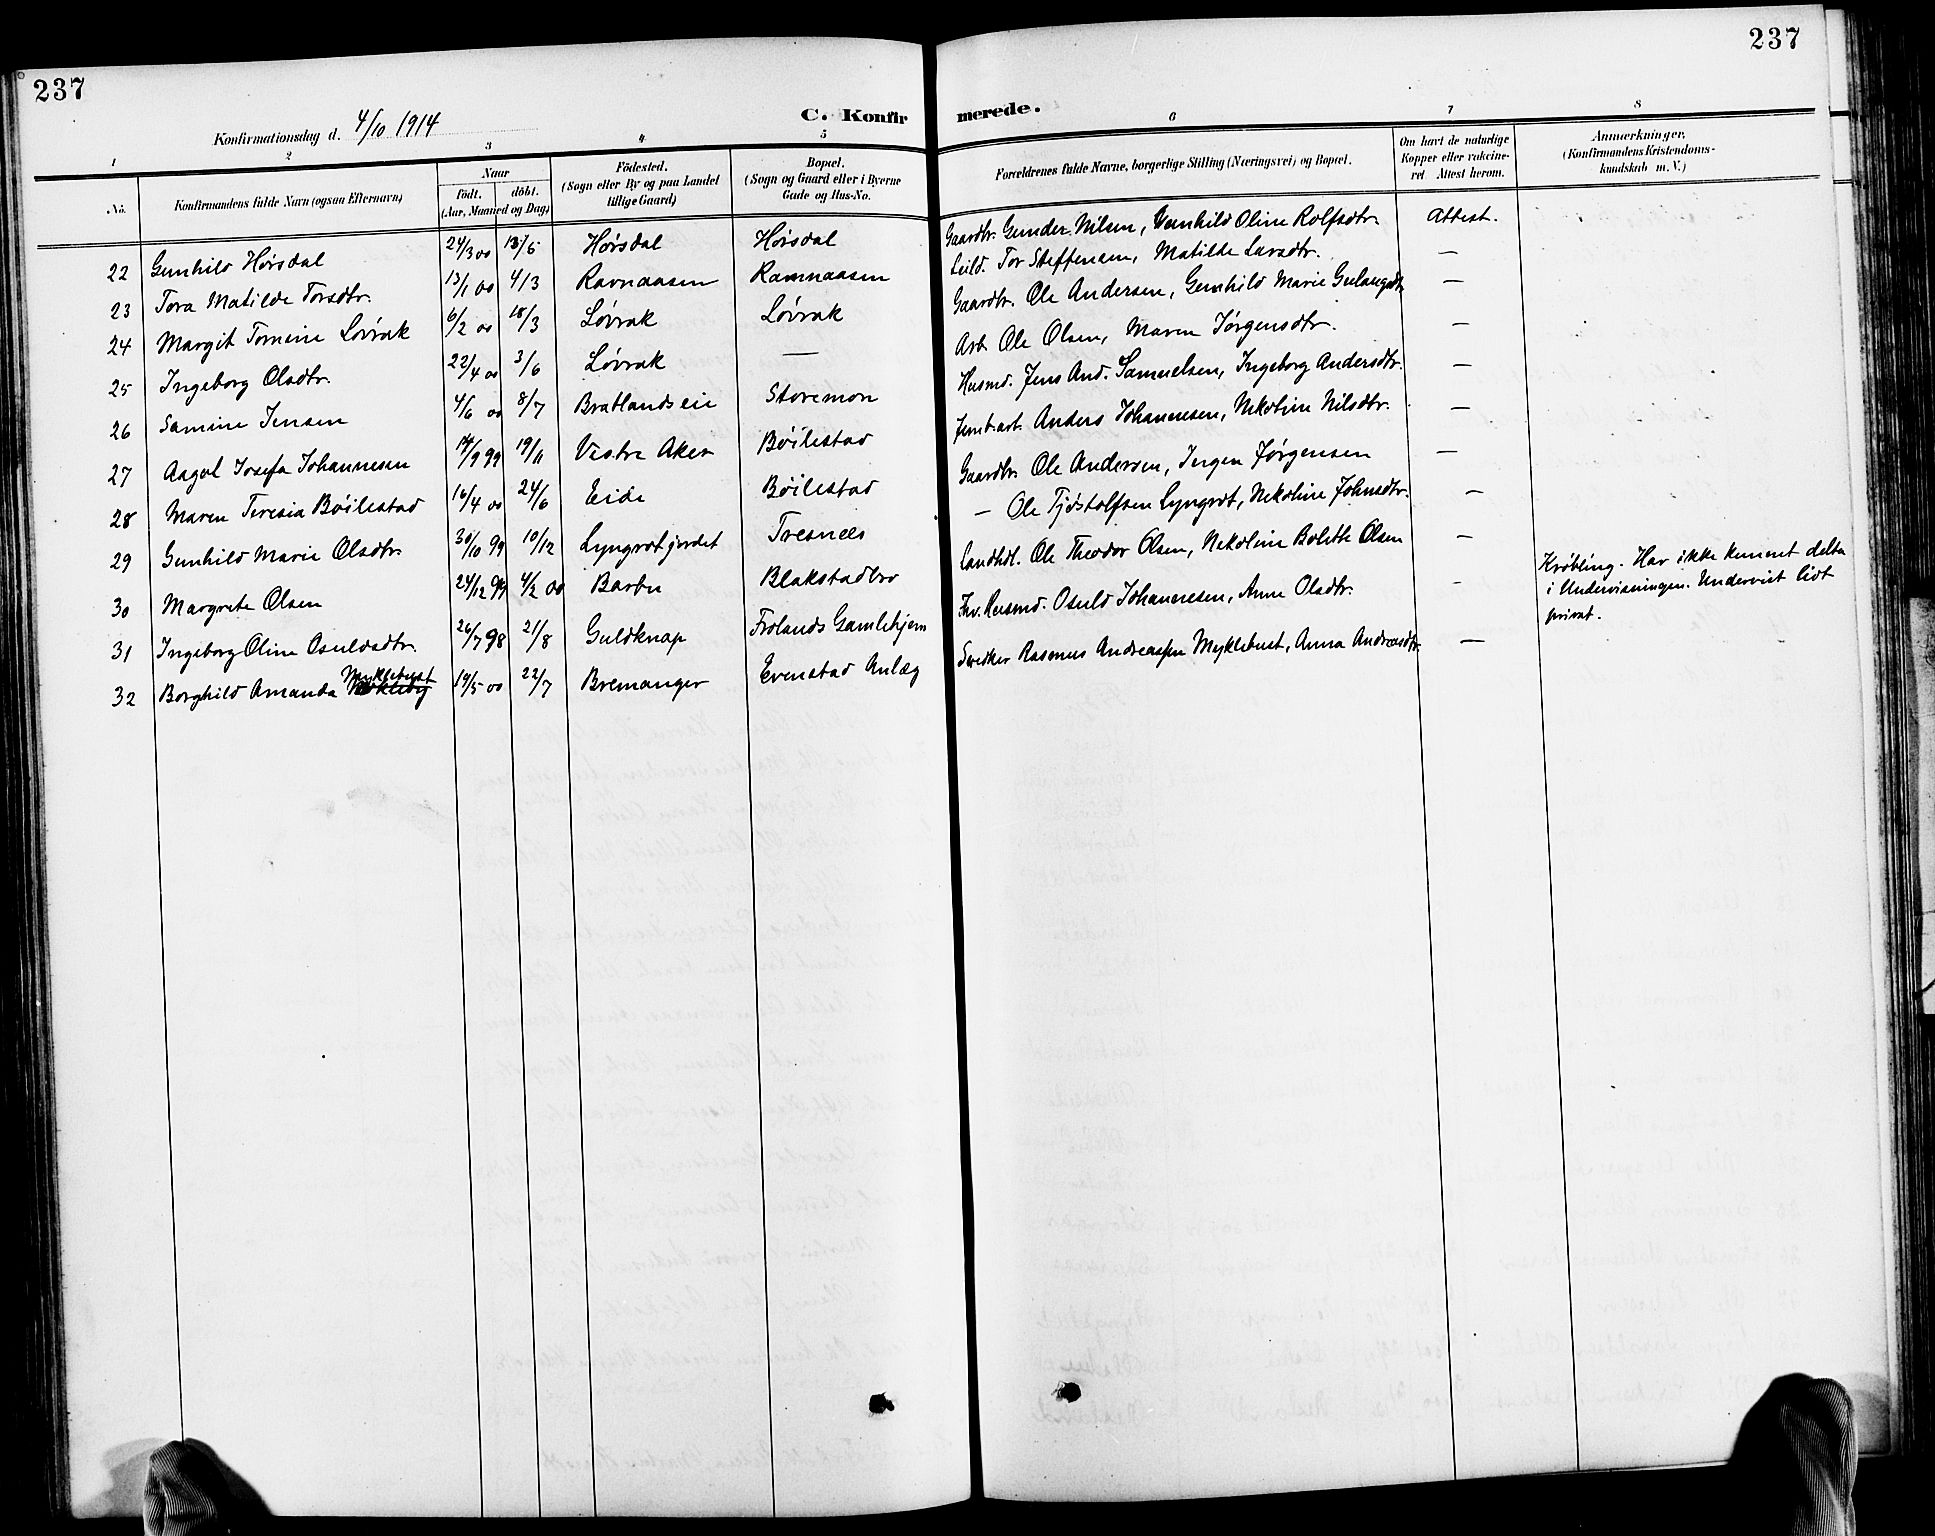 237
237
Konfirmationsdag d. 4/10 1914
C. Konfirmerede.
1 2 3 4 5 6 7 8
No. Konfirmandens fulde Navn (ogsaa Efternavn) Naar født. døbt. (Aar, Maaned og Dag) Fødested. (Sogn eller By og paa Landet tillige Gaard) Bopæl. (Sogn og Gaard eller i Byerne Gade og Hus-No. Forældrenes fulde Navne, borgerlige Stilling (Næringsvei) og Bopæl. Om havt de naturlige Kopper eller vakcineret. Attest herom. Anmærkninger, (Konfirmandens Kristendomskundskab m. V.)
22 Gunhild Høisdal 24/3 00 13/5 Høisdal Høisdal Gaardbr. Gunder Nilsen, Gunhild Oline Rolfsdtr. Attest.
23 Tora Matilde Torsdtr. 13/1 00 4/3 Ravnaasen Ramnaasen Leild. Tor Steffensen, Matilde Larsdtr. —
24 Margit Tomine Løvrak 6/2 00 18/3 Løvrak Løvrak Gaardbr. Ole Andersen, Gunhild Marie Gulaugsdtr —
25 Ingeborg Olsdtr. 22/4 00 3/6 Løvrak — Arb. Ole Olsen, Maren Jørgensdtr. —
26 Samine Jensen 4/6 00 8/7 Bratlandseie Storemon Husmd. Jens And. Samuelsen, Ingeborg Andersdtr. —
27 Aagot Josefa Johannesen 14/9 99 19/11 Vestre Aker Bøilestad Jernb.arb. Anders Johannesen, Nikoline Nilsdtr. —
28 Maren Teresia Bøilestad 16/4 00 24/6 Eide Bøilestad Gaardbr. Ole Andersen, Ingen Jørgensen —
29 Gunhild Marie Olsdtr. 30/10 99 10/12 Lyngrotjordet Tresnes — Ole Tjøstolfsen Lyngrot, Nikoline Johnsdtr. —
30 Margrete Olsen 24/12 99 4/2 00 Barbu Blakstadbro Landhdl. Ole Theodor Olsen, Nikoline Bolette Olsen —
31 Ingeborg Oline Osuldsdtr. 26/7 98 21/8 Guldknap Frolands Gamlehjem Inv. Husmd. Osuld Johannesen, Anne Olsdtr. - Krøbling. Har ikke kunnet delta
i Undervisningen. Undervist lidt
privat.
32 Borghild Amanda Myklebust 19/5 00 22/7 Bremanger Evenstad Anlæg Snedker Rasmus Andreassen Myklebust, Anna Andreasdtr. —